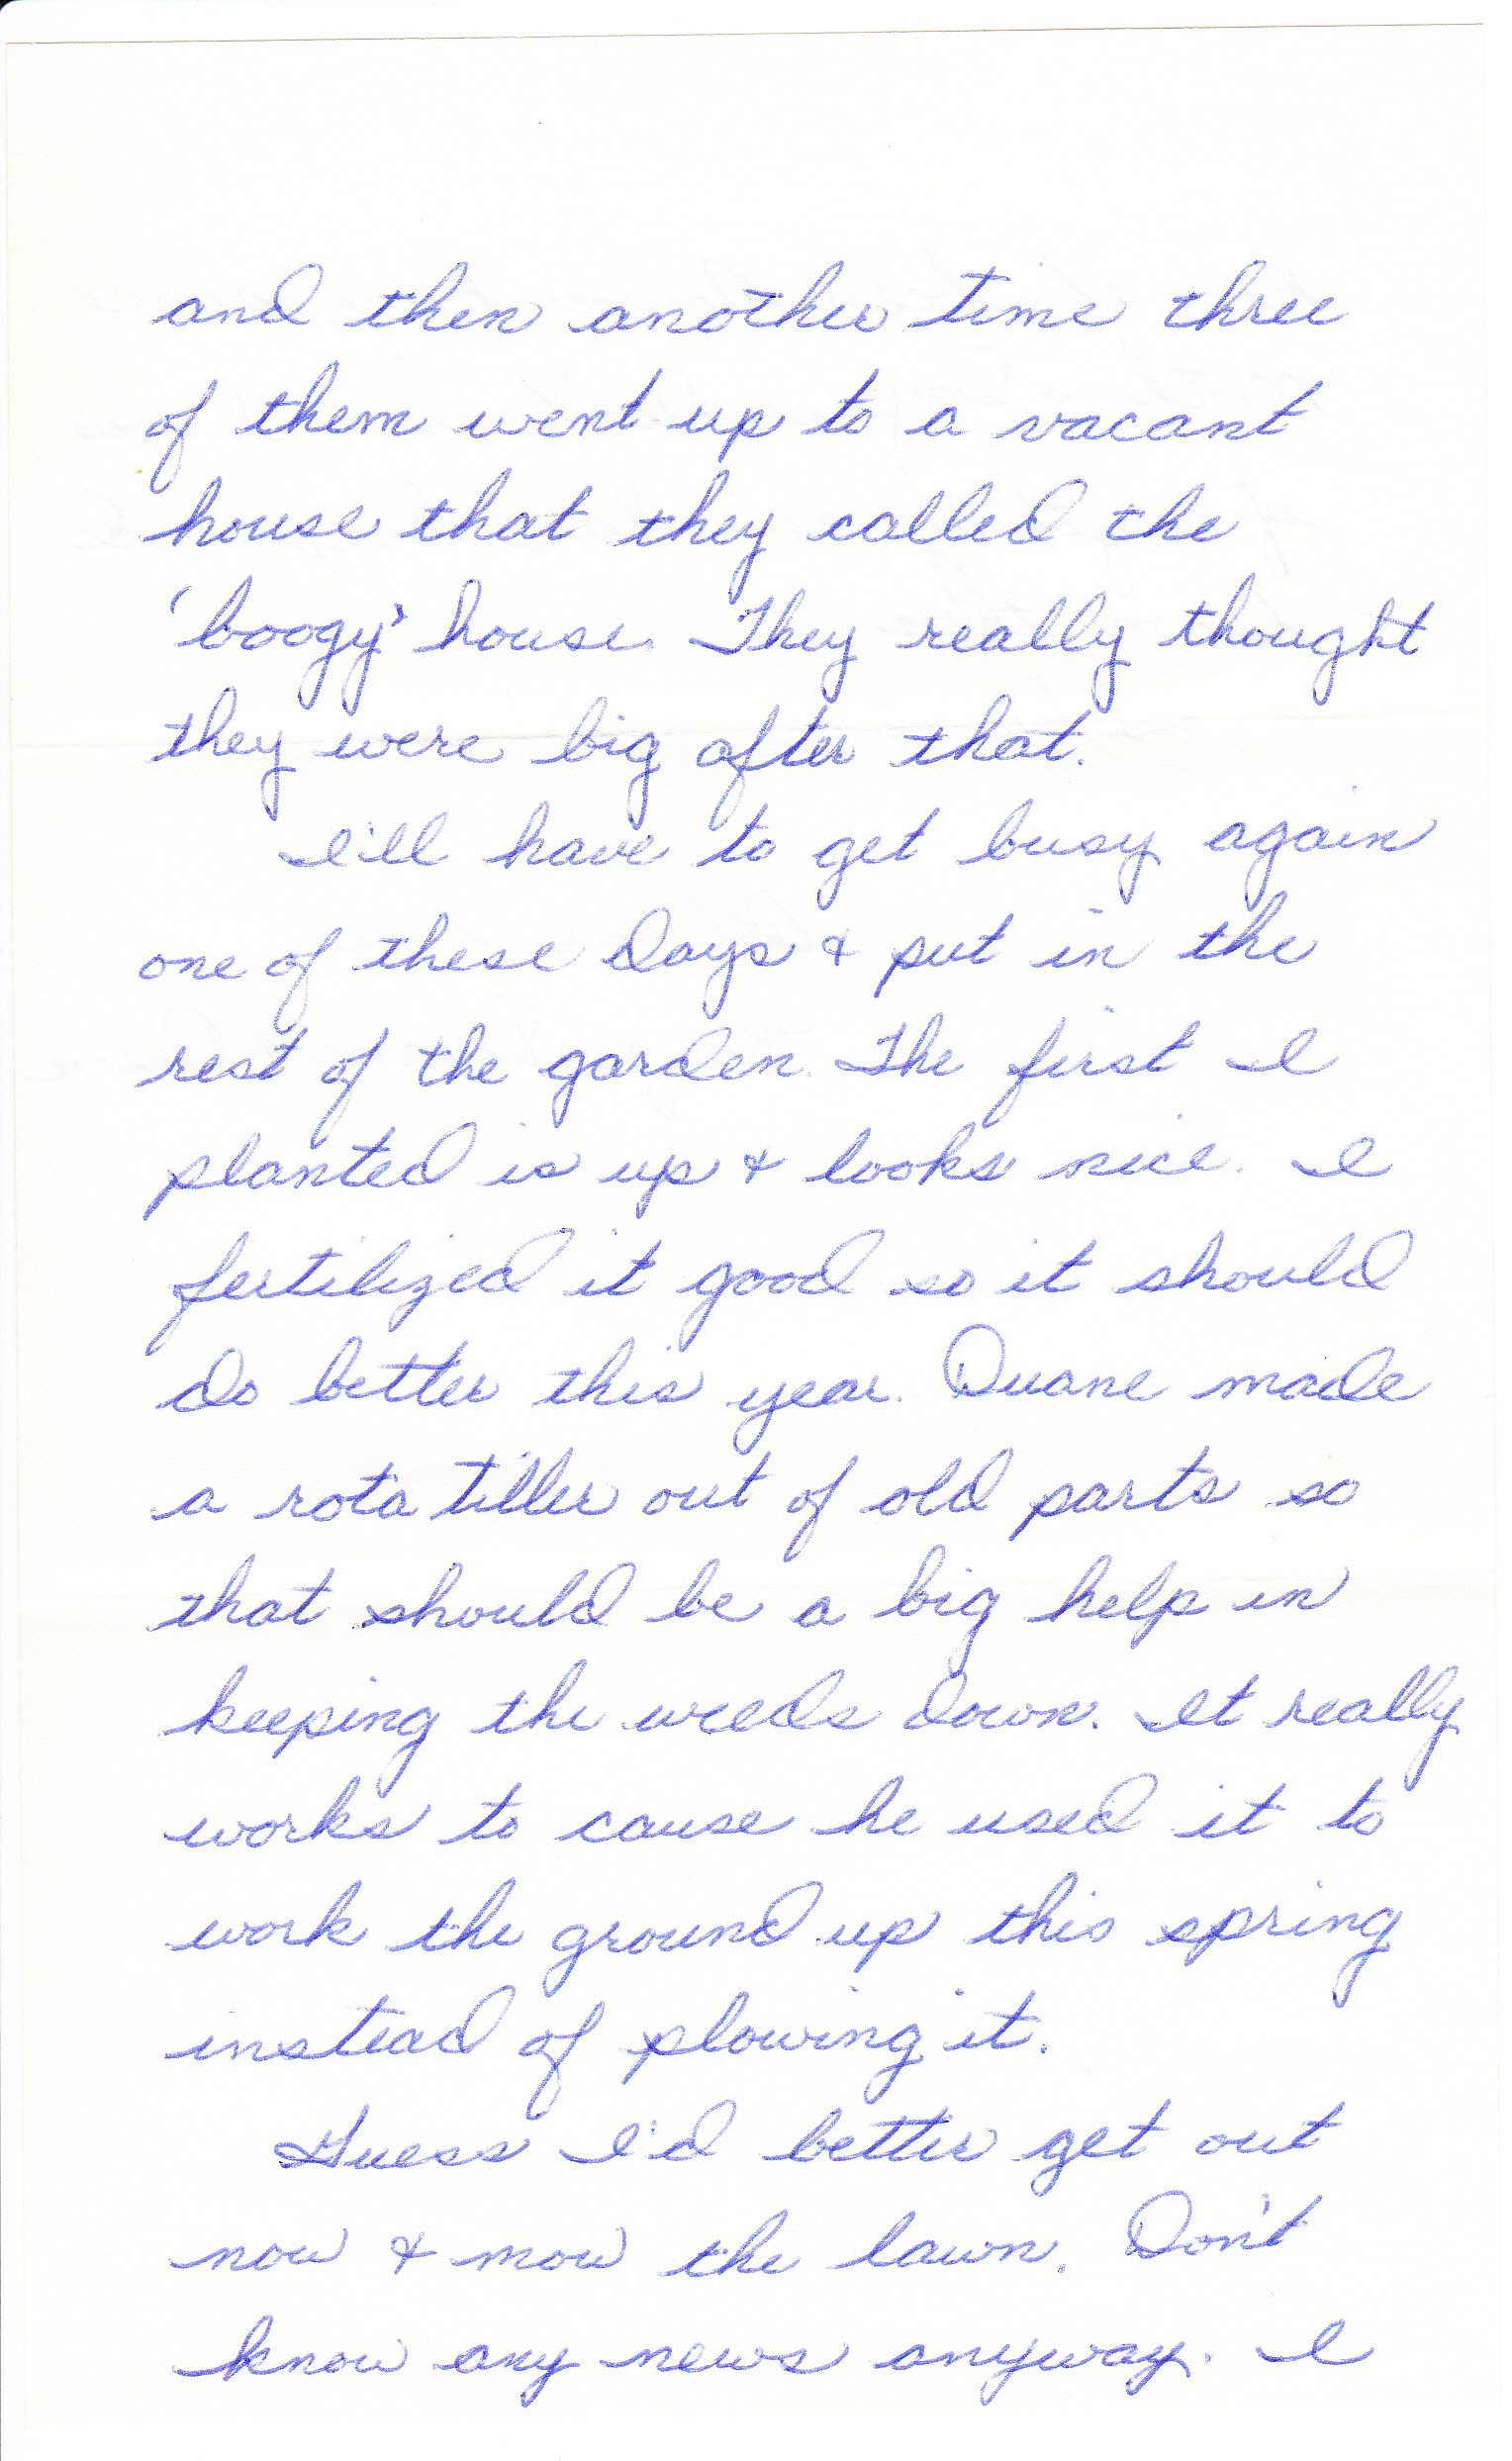 and then another time three
of them went up to a vacant
house that they called the
'boogy' house. They really thought
they were big after that.
I'll have to get busy again
one of these days & put in the
rest of the garden. The first I
planted is up & looks nice. I
fertilized it good so it should
do better this year. Duane made
a rota tiller out of old parts so
that should be a big help in
keeping the weeds down. It really
works to cause he used it to
work the ground up this spring
instead of plowing it.
Guess I'd better get out
now & mow the lawn. Don't
know any news anyway. I